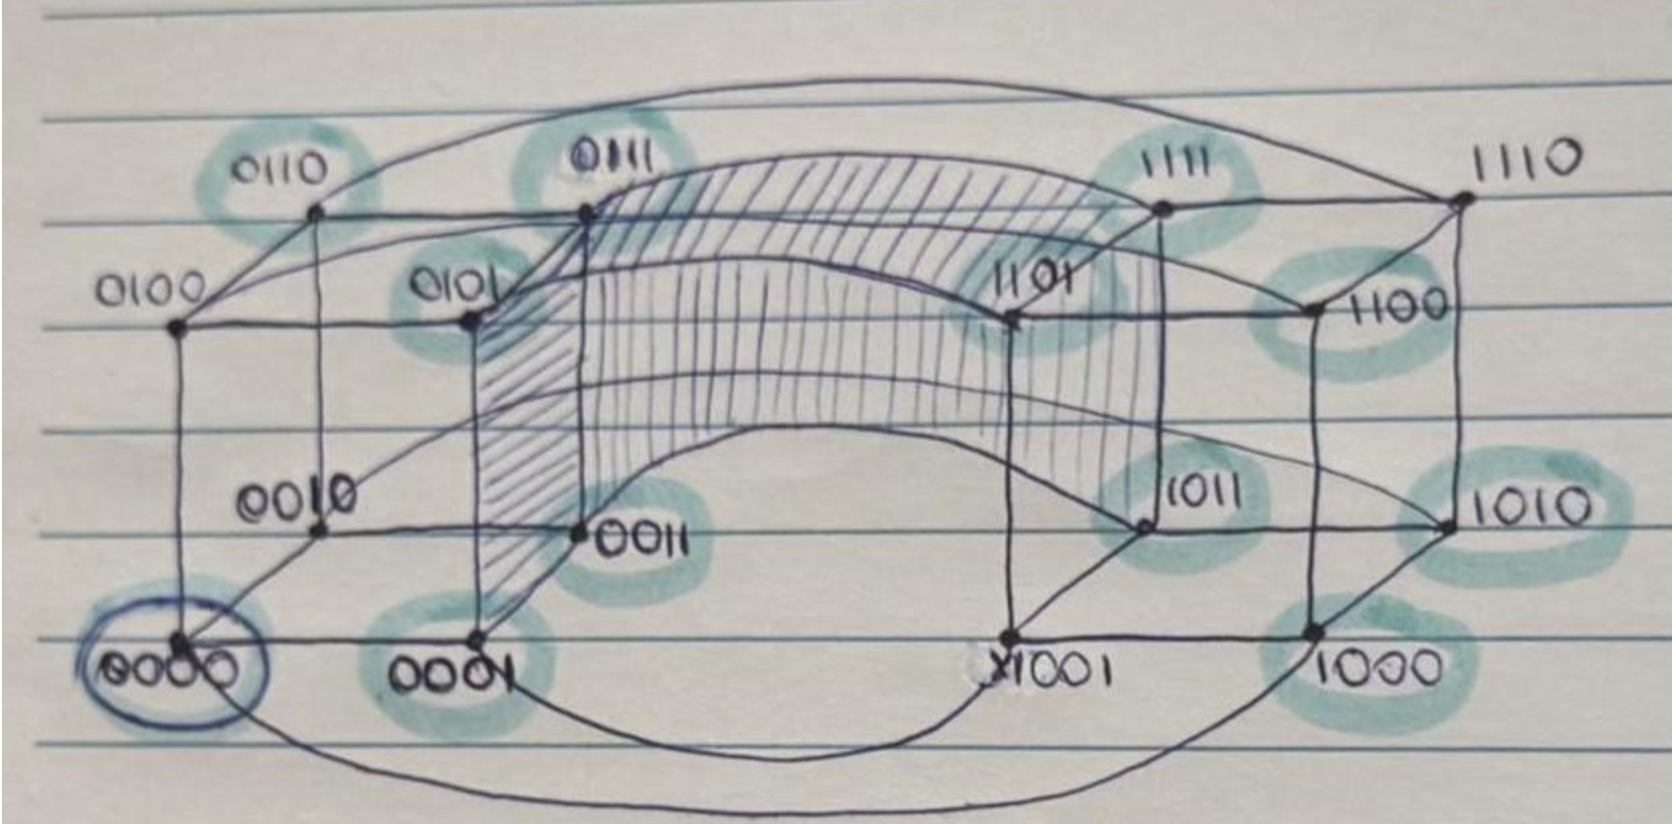 0110 0111 1111 1110
0100 0101 1101 1100
0010 0011 1011 1010
0000 0001 1001 1000